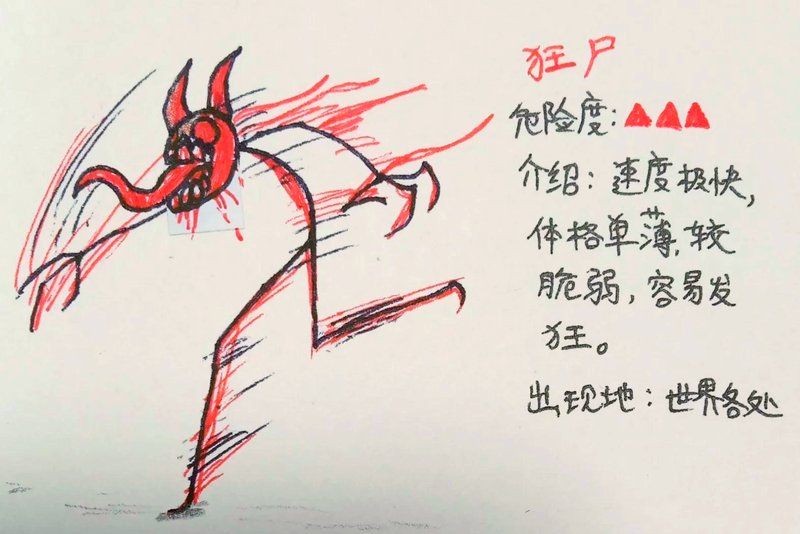 狂尸
危险度：▲▲▲
介绍：速度极快，
体格单薄，较
脆弱，容易发
狂。
出现地：世界各处